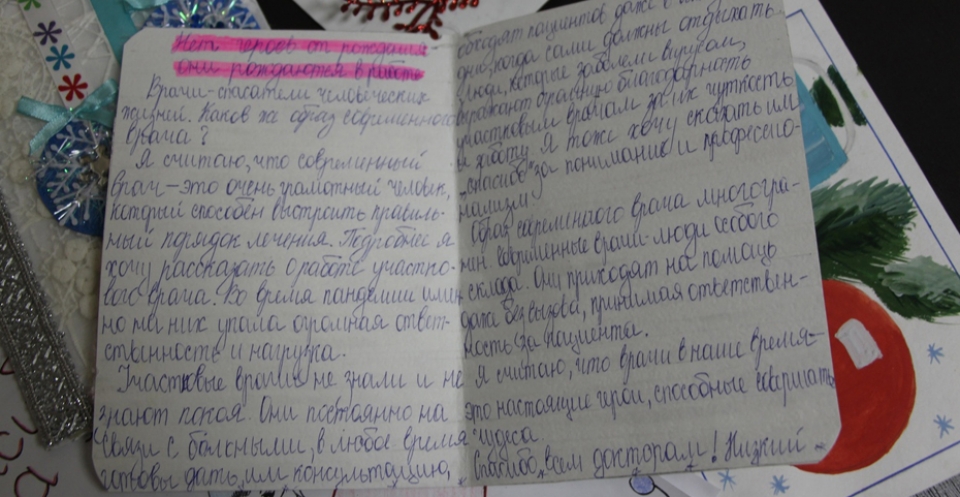 Нет героев от рождения
они рождаются в работе
Врачи-спасатели человеческих
жизней. Каков же образ современного
врача?
Я считаю, что современный
врач – это очень грамотный человек,
который способен выстроить правиль-
ный порядок лечения. Подробнее я
хочу рассказать о работе участко-
вого врача. Во время пандемии имен-
но на них упала огромная ответ-
ственность и нагрузка.
Участковые врачи не знали и не
знают покоя. Они постоянно на
связи с больными, в любое время
готовы дать им консультацию,
обходят пациентов даже в
дни, когда сами должны отдыхать.
Люди, которые заболели вирусом,
выражают огромную благодарность
участковым врачам за их чуткость
и работу. Я тоже хочу сказать им
„спасибо" за понимание и профессио-
нализм.
Образ современного врача многогра-
нен. Современные врачи – люди особого
склада. Они приходят на помощь
даже без вызова, принимая ответствен-
ность за пациента.
Я считаю, что врачи в наше время –
это настоящие герои, способные совершать
чудеса.
Спасибо всем докторам! Низкий